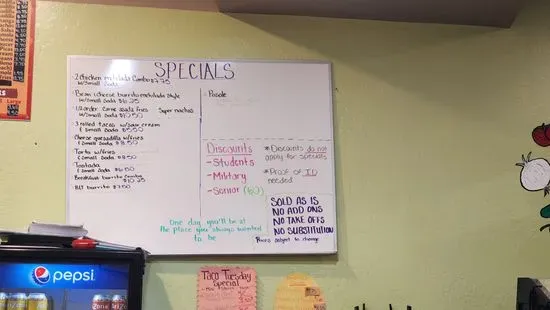 SPECIALS
2 chicken enchilada Combo $7.75
w/Small Soda
Bean &cheese burrito enchilada style
w/small Soda $10.25
1/2 order Carne asada fries Super nachos
w/Small Soda $10.50
3 rolled tacos w/sour cream
& Small Soda $5.50
Cheese quesadilla w/fries
& Small Soda $8.50
Torta w/fries
& Small Soda
Tostada
& Small Soda $6.50
Breakfast burrito Combo
$10.25
BLT burrito $7.50
Pozole
Discounts
-Students
-Military
-Senior (60)
*Discounts do not
apply for specials
*Proof of ID
needed
SOLD AS IS
NO ADD ONS
NO TAKE OFFS
NO SUBSTITUTION
Prices subject to change
One day you'll be at
the place you always wanted
to be
pepsi
Taco Tuesday
Special